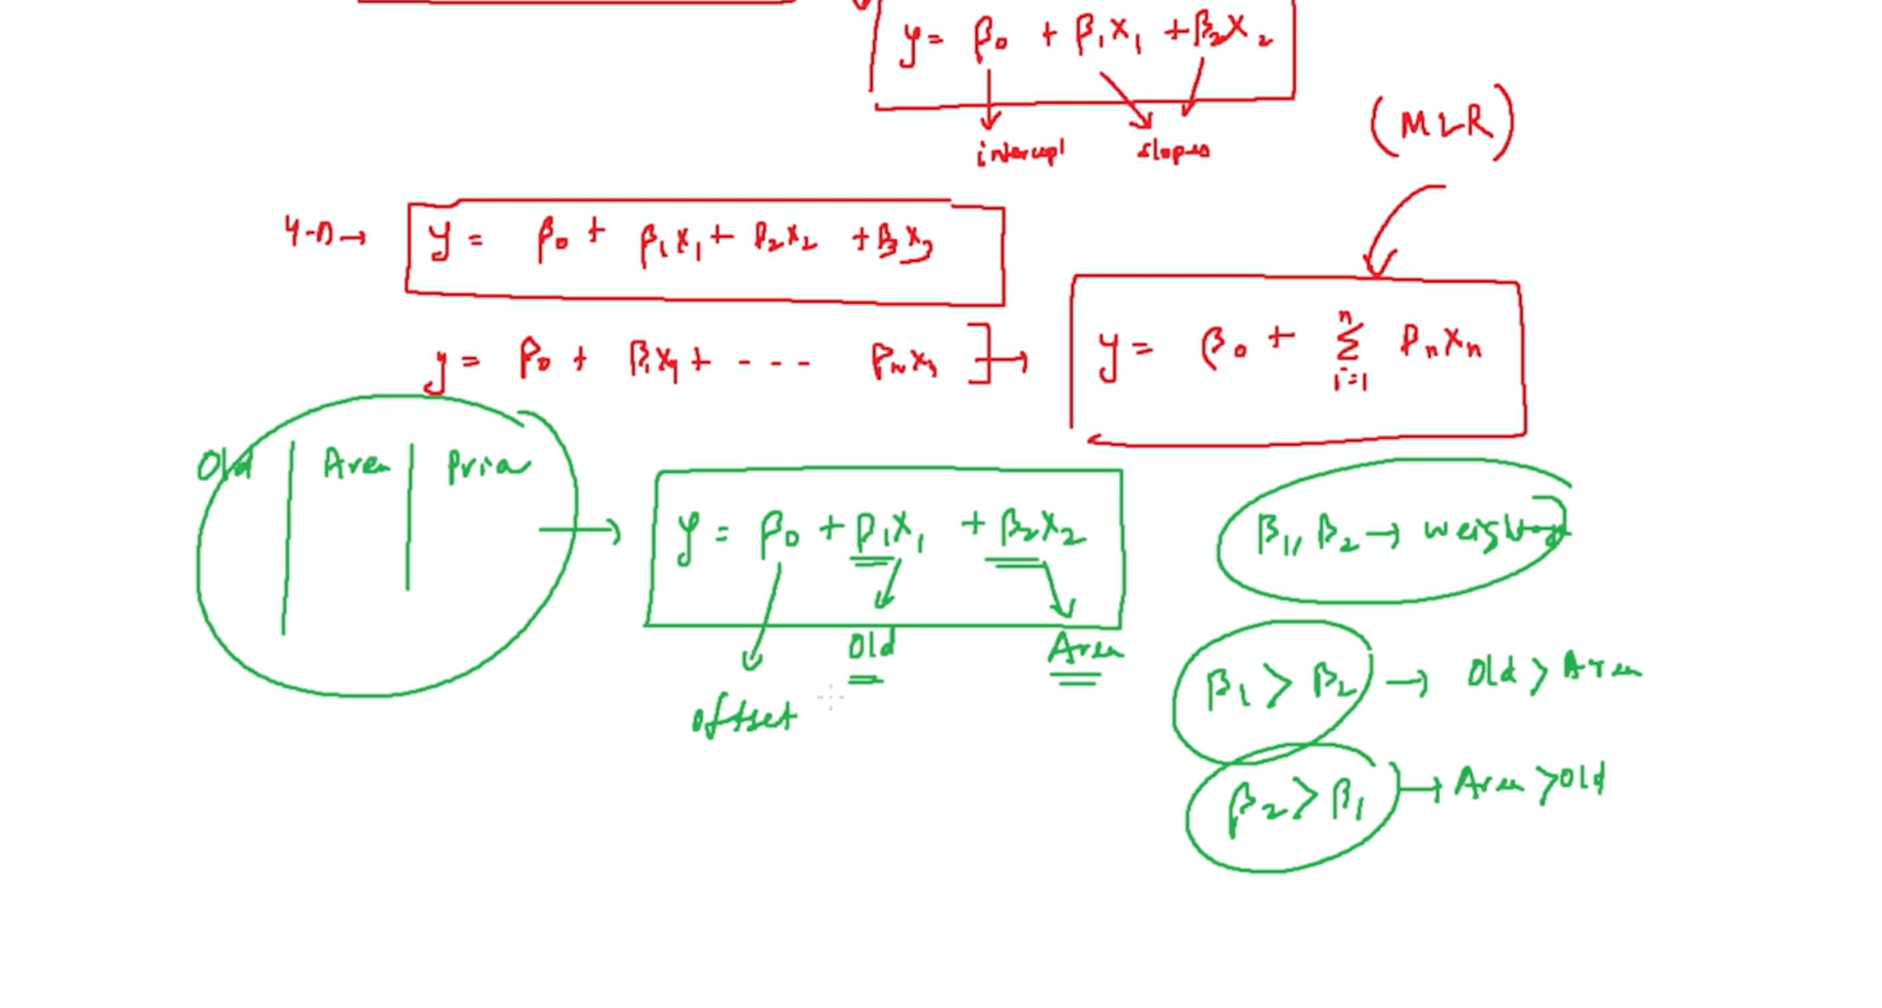 y = β₀ + β₁x₁ + β₂x₂
intercept slopes
(MLR)
4-D → y = β₀ + β₁x₁ + β₂x₂ + β₃x₃
y = β₀ + β₁x₁ + - - - βₙxₙ ] →
y = β₀ + ⁿΣᵢ₌₁ βₙxₙ
Old | Area | Price
→ y = β₀ + β₁x₁ + β₂x₂
offset Old Area
β₁, β₂ →
β₁ > β₂ → Old > Area
β₂ > β₁ → Area > Old